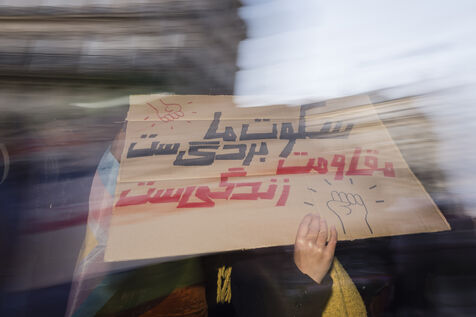 سکوت ما
بردگی ست
مقاومت
زندگی ست